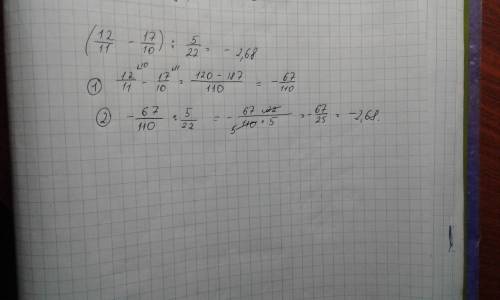 (12/11 - 17/10) : 5/22 = -2,68
① 12/11 \10 - 17/10 \11 = (120 - 187)/110 = -67/110
② -67/110 : 5/22 = -(67 · 22)/(110 · 5) 5 = -67/25 = -2,68.